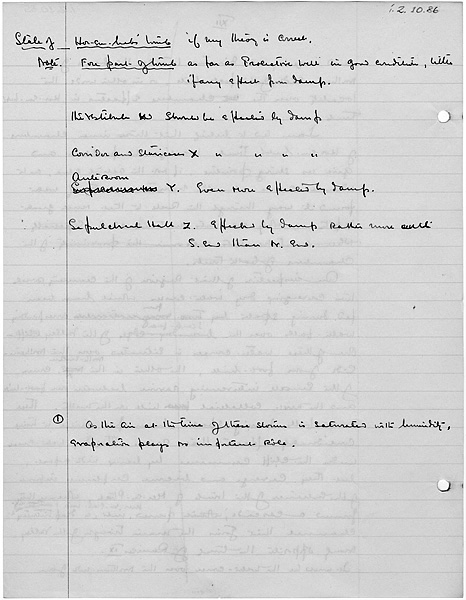 1.2.10.86
State of Hor-em-heb's tomb if my theory is correct.
Note. Fore part of tomb as far as Protective Well in good condition, little
if any effect from damp.
Vestibule W Should be effected by damp
Corridor and Staircase X " " " "
Anteroom
Y. Even more effected by damp.
Sepulchral Hall Z. Effected by damp rather more
S. End than N. End.
① As the air at the time of these storms is saturated with humidity,
evaporation plays no important rôle.